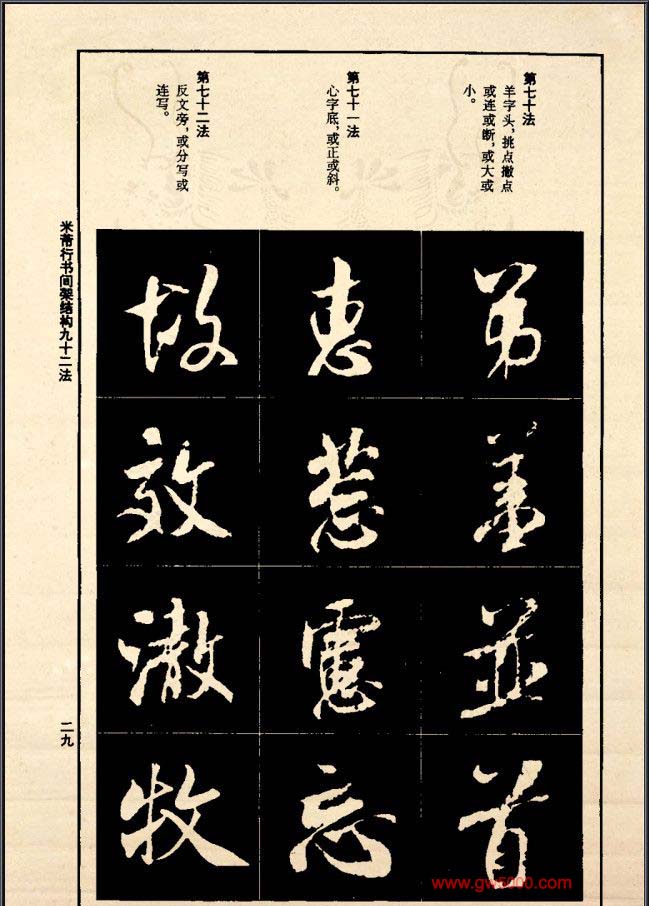 第七十法
羊字头,挑点撇点
或连或断,或大或
小。
弟
並
首
第七十一法
心字底,或正或斜。
恵
惹
忘
第七十二法
反文旁,或分写或
连写。
故
效
澈
牧
米芾行书间架结构九十二法
二九
www.gw5000.com